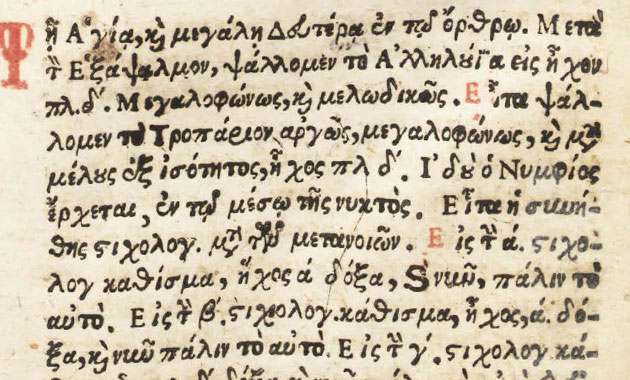 Τῇ Ἁγίᾳ, καὶ μεγάλῃ Δευτέρᾳ ἐν τῷ ὄρθρῳ. Μετὰ
τὸν Ἑξάψαλμον, ψάλλομεν τὸ Ἀλληλούϊα εἰς ἦχον
πλ. δ΄. Μεγαλοφώνως, καὶ μελωδικῶς. Εἶτα ψάλ-
λομεν τὸ Τροπάριον ἀργῶς, μεγαλοφώνως, καὶ μετὰ
μέλους ἐξ ἰσότητος, ἦχος πλ δ΄. Ἰδοὺ ὁ Νυμφίος
ἔρχεται, ἐν τῷ μέσῳ τῆς νυκτὸς. Εἶτα ἡ συνή-
θης στιχολογ. μετὰ τῶν μετανοιῶν. Εἰς τὴν ά. στιχο-
λογ κάθισμα, ἦχος ά δόξα, καὶ νῦν, πάλιν τὸ
αὐτό. Εἰς τὴν β΄. στιχολογ. κάθισμα, ἦχος, ά. δό-
ξα, καὶ νῦν πάλιν τὸ αὐτό. Εἰς τὴν γ΄. στιχολογ κά-